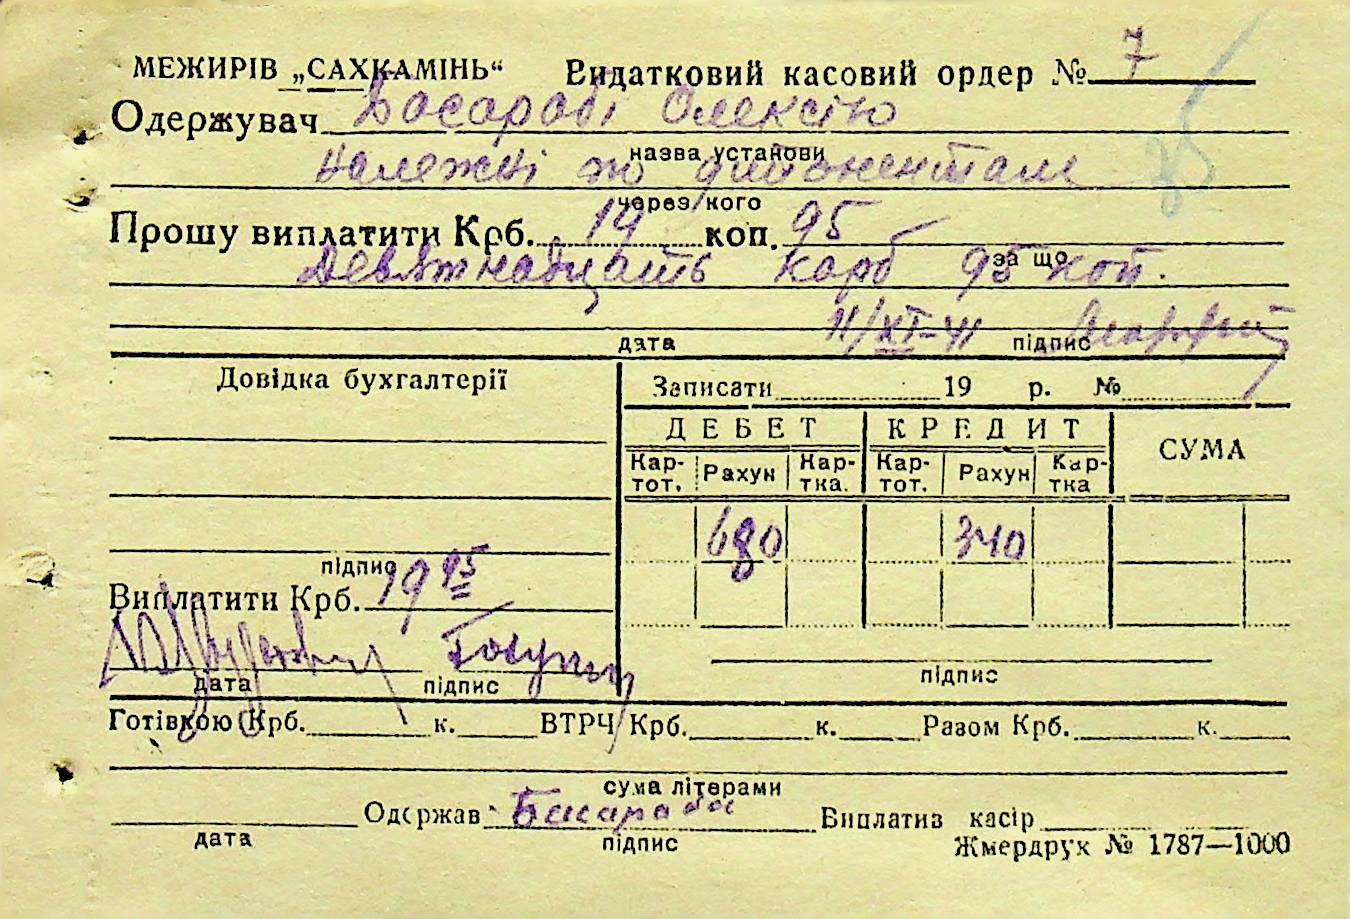 МЕЖИРІВ „САХКАМІНЬ“ Видатковий касовий ордер № 7
Одержувач Басарабі Олексію
назва установи
належні по депонентам
через кого
Прошу виплатити Крб. 19 коп. 95
за що
Девятнадцять карб 95 коп.
11/XI-41
дата підпис
Довідка бухгалтерії
Записати 19 р. №
ДЕБЕТ КРЕДИТ СУМА
Кар-тот. Рахун Кар-тка. Кар-тот. Рахун Кар-тка
680 340
підпис
Виплатити Крб. 19 95
дата підпис підпис
Готівкою Крб. к. ВТРЧ Крб. к. Разом Крб. к.
сума літерами
Одержав Басараба Виплатив касір
дата підпис
Жмердрук № 1787—1000